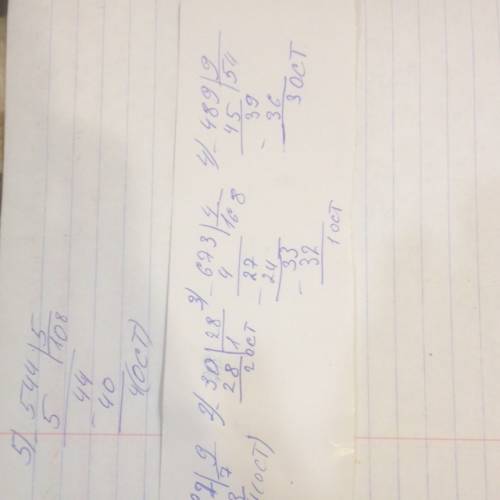 5) 544 | 5
5 | 108
44
- 40
4(ОСТ)
9
7
(ОСТ)
2) - 30 | 28
28 | 1
2 ОСТ
3) - 673 | 4
4 | 168
27
- 24
33
- 32
1 ОСТ
4) - 489 | 9
45 | 54
39
- 36
3 ОСТ